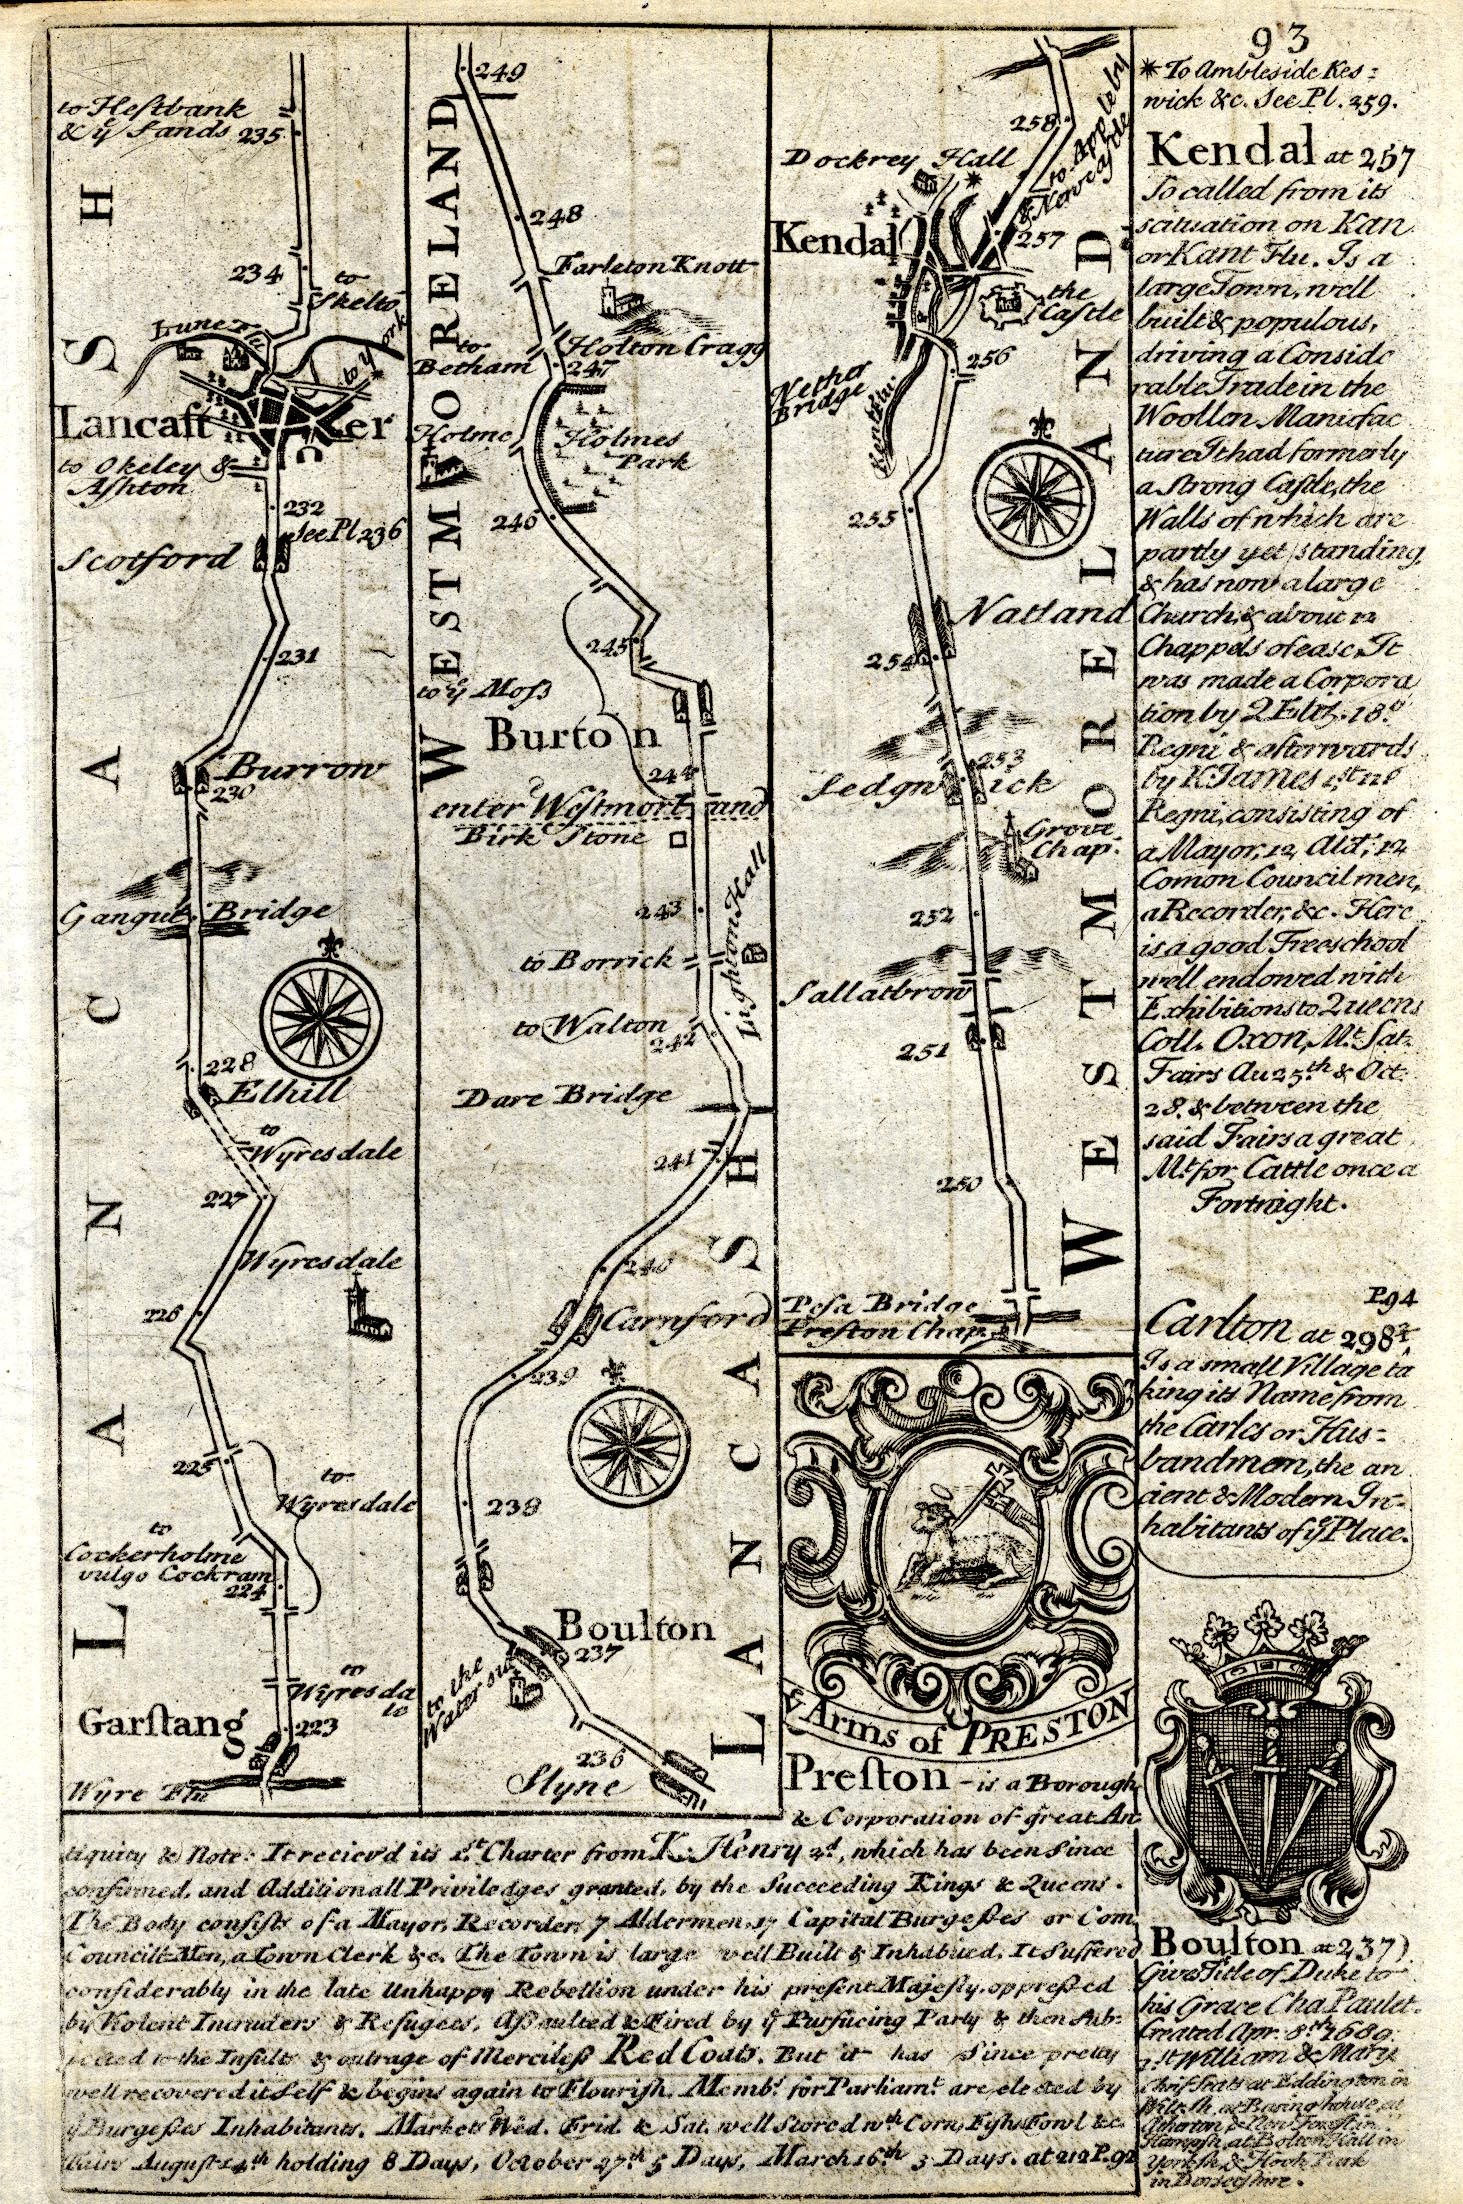 93
to Heſtbank
& yͤ Sands 235
234
to
Skelto
Lune Flu
to York
Lancaſter
to Okeley &
Aſhton
232
See Pl 236
Scotford
231
Burrow
230
Gangut Bridge
228
Elhill
to
Wyresdale
227
Wyresdale
226
225
to
Wyresdale
to
Cockerholme
vulgo Cockram
224
to
Wyresda
le
Garſtang
223
Wyre Flu
LANCASH
249
248
Farleton Knott
Holton Cragg
to
Betham
247
Holme
Holmes
Park
246
245
to yͤ Moſs
Burton
244
enter Weſtmorland
Birk Stone
243
Lighton Hall
to Borrick
to Walton
242
Dare Bridge
241
240
Carnford
239
238
Boulton
237
to the
Water
236
Slyne
WESTMORELAND
LANCASH
258
to Appleby
& Newcaſtle
Dockrey Hall
Kendal
257
the
Caſtle
256
Nether
Bridge
Kent Flu.
255
Natland
254
253
Sedgwick
Grove
Chap.
252
Sallatbrow
251
250
Peſa Bridge
Preſton Chap.
WESTMORELAND
* To Ambleside Kes=
wick &c. See Pl. 259.
Kendal at 257
So called from its
scituation on Kan
or Kant Flu. Is a
large Town, well
built & populous,
driving a Conside
rable Trade in the
Woollen Manufac
ture It had formerly
a Strong Caſtle, the
Walls of which are
partly yet standing,
& has now a large
Church, & about 12
Chappels of ease. It
was made a Corpora
tion by Q Eliz. 18.º
Regni & afterwards
by K. James 1.st
Regni, consisting of
a Mayor, 12 Ald.r 12
Comon Council men,
a Recorder, &c. Here
is a good Freeschool
well endowed with
Exhibitions to Queens
Coll. Oxon, Mt. Sat.
Fairs Au 25.th & Oct.
28. & between the
said Fairs a great
Mt. for Cattle once a
Fortnight.
P 94
Carlton at 298¾
Is a small Village ta
king its Name from
the Carles or Hus=
bandmem, the an
cient & Modern In=
habitants of yͤ Place.
yͤ Arms of PRESTON
Preſton - is a Borough
& Corporation of great An
tiquity & Note: It reciev'd its 1.st Charter from K. Henry 2.d, which has been Since
confirmed, and Additionall Priviledges granted, by the Succeeding Kings & Queens.
The Body conſiſts of a Mayor, Recorder, 7 Aldermen, 17 Capital Burgeſſes or Com
Council Men, a Town Clerk &c. The Town is large well Built & Inhabited. It Suffered
conſiderably in the late Unhappy Rebellion under his preſent Majeſty, oppreſſed
by Violent Intruders & Refugees, Aſſaulted & Fired by yͤ Purſueing Party & then Sub=
jected to the Inſults & outrage of Mercileſs Red Coats. But it has Since pretty
well recovered it Self & begins again to Flouriſh. Memb.s for Parliam.t are elected by
yͤ Burgeſſes Inhabitants. Markets Wed. Frid. & Sat. well Stored wth Corn, Fyſh Fowl &c
Fairs Auguſt 14th holding 8 Days, October 27th 5 Days, March 16th 3 Days. at 212 P. 92
Boulton at 237)
Gives Title of Duke to
his Grace Cha. Paulet.
Created Apr. 8.th 1689
1.st William & Mary
Chief Seats at Eddington in
Wiltſh. at Basing house, at
Abberton & New Foreſt in
Hampſh. at Bolton Hall in
Yorkſh. & Hook Park
in Dorsetſhire.